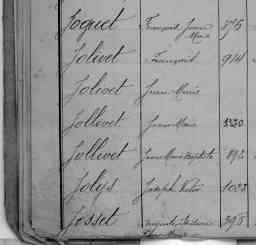 Joquet François Jean Marie 876
Jolivet François 914
Jolivet Jean Marie
Jollivet Jean Marie 1320
Jollivet Jean Marie Baptiste 892
Jolys Joseph 1028
Josset Auguste 398